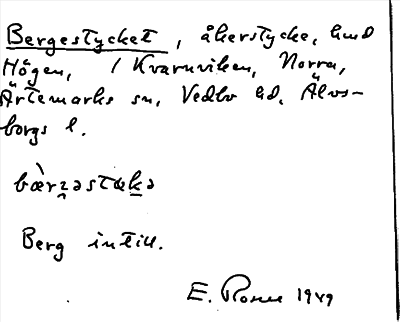 Bergestycket, åkerstycke, hmd
Högen, / Kvarnviken, Norra,
Ärtemarks sn, Vedbo hd, Älvs-
borgs l.
bæ̀rz̭əstuk̲ə
Berg intill.
E. 1949